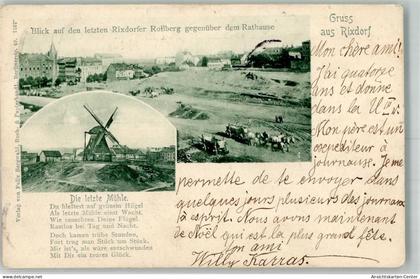 Blick auf den letzten Rixdorfer Roßberg gegenüber dem Rathause
Gruss
aus Rixdorf
Die letzte Mühle.
Du bliebst auf grünem Hügel
Als letzte Mühle einst Wacht,
Wie rauschten Deine Flügel
Rastlos bei Tag und Nacht.
Doch kamen trübe Stunden,
Fort trug man Stück um Stück.
Mir ist's, als wäre entschwunden
Mit Dir ein treues Glück.
Mon chère ami!
J'ai quatorze
ans et donne
dans la
Mon père est un
expéditeur à
journause. Je me
permette de te envoyer dans
quelques jours plusieurs des journaux
à esprit. Nous avons maintenant
de Noël qui est la plus grand fête.
ton ami
Willy Karras.
www.Ansichtskarten-Center.de